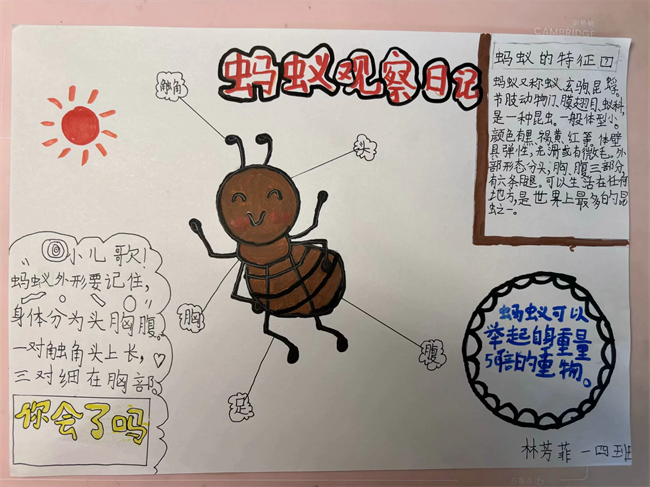 CAMBRIDGE
蚂蚁观察日记
触角
头
胸
足
腹
蚂蚁的特征
蚂蚁又称蚁、玄驹、昆
节肢动物门、膜翅目、蚁科,
是一种昆虫。一般体型小,
颜色有黑、褐、黄、红等,体壁
具弹性,光滑或有微毛。外
部形态分头、胸、腹三部分,
有六条腿。可以生活在任何
地方,是世界上最多的昆
虫之一。
小儿歌!
蚂蚁外形要记住,
身体分为头胸腹。
一对触角头上长,
三对细在胸部。
你会了吗
蚂蚁可以
举起自身重量
50倍的重物。
林芳菲 一四班